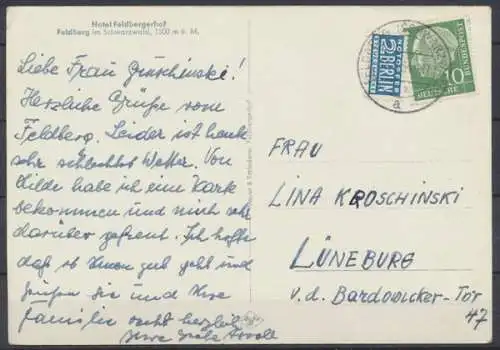 Hotel Feldbergerhof
Feldberg im Schwarzwald, 1500 m ü. M.
Liebe Frau
Herzliche Grüße vom
Feldberg. Leider ist heute
sehr schlechtes Wetter. Von
Hilde habe ich eine Karte
bekommen und mich sehr
darüber gefreut. Ich hoffe
daß es Ihnen gut geht und
grüßen Sie und Ihre
Familie recht herzlich
Ihre
NOTOPFER
2 BERLIN
STEUERMARKE
DEUTSCHE
10
a
FRAU
LINA KROSCHINSKI
LÜNEBURG
v.d. Bardowicker-Tor
47